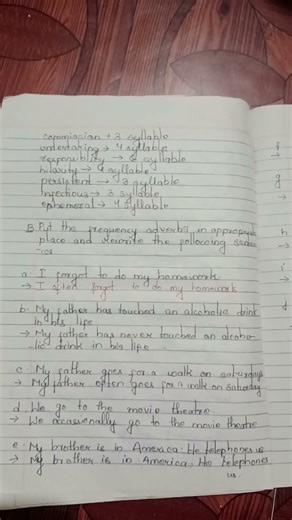 commission → 3 syllable
undertaking → 4 syllable
responsiblity → 6 syllable
hilarity → 4 syllable
persistent → 3 syllable
Infectious → 3 syllable
ephemeral → 4 syllable
B. Put the frequency adverbs in appropriate
place and rewrite the following senten
-ces
a. I forgot to do my homework
→ I often forgot to do my homework
b. My father has touched an alcoholic drink
in his life
→ My father has never touched an alcoho
-lic drink in his life.
c. My father goes for a walk on saturdays
→ My father often goes for a walk on saturday
d. We go to the movie theatre
→ We occasionally go to the movie theatre
e. My brother is in America. He telephones us
→ My brother is in America. He telephones
us.
f
g
h
i
d